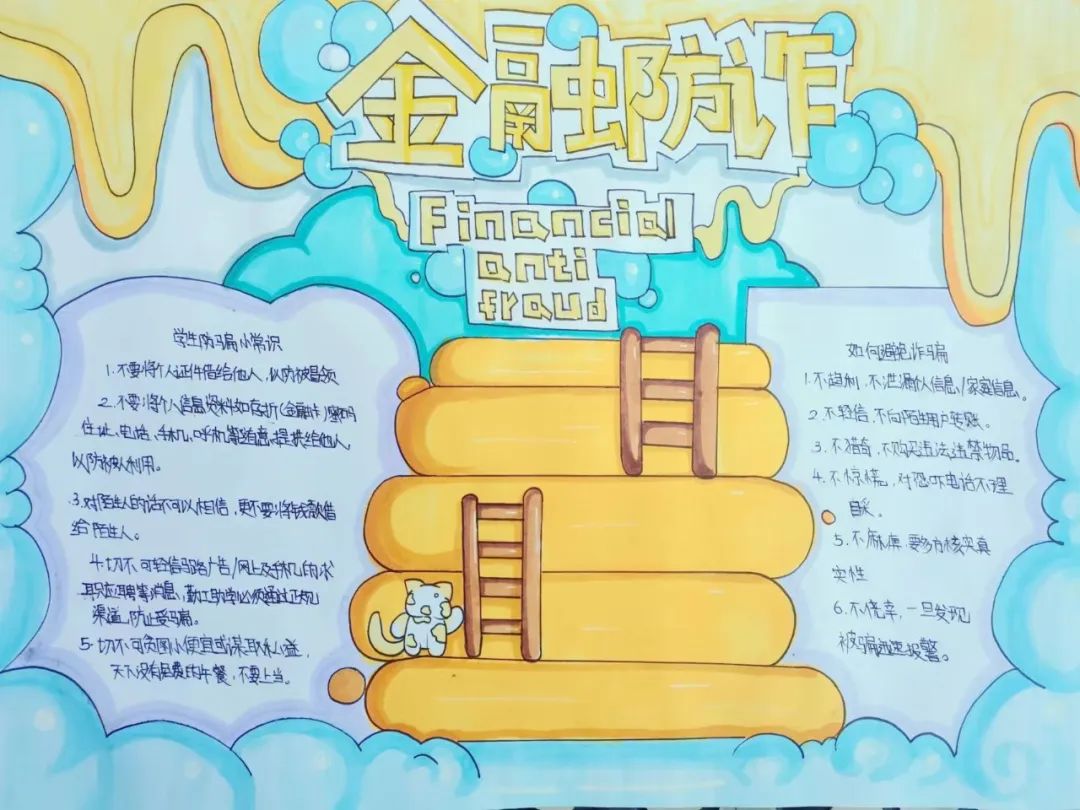 金融防诈
Financial
anti
fraud
学生防骗小常识
1.不要将个人证件借给他人，以防被冒领
2.不要将个人信息资料如存折(金融卡)密码
住址、电话、手机、呼机等随意提供给他人
以防被人利用。
3.对陌生人的话不可以相信，更不要将钱款借
给陌生人。
4.切不可轻信马路广告/网上及手机的求
职应聘等消息，勤工助学必须通过正规
渠道，防止受骗。
5.切不可贪图小便宜或谋取私益，
天下没有免费的午餐，不要上当。
如何避免诈骗
1.不胡乱，不泄漏个人信息/家庭信息。
2.不轻信，不向陌生用户转账。
3.不猎奇，不购买违法违禁物品。
4.不惊慌，对恐吓电话不理
睬。
5.不麻痹，要多方核实真
实性
6.不侥幸，一旦发现
被骗迅速报警。